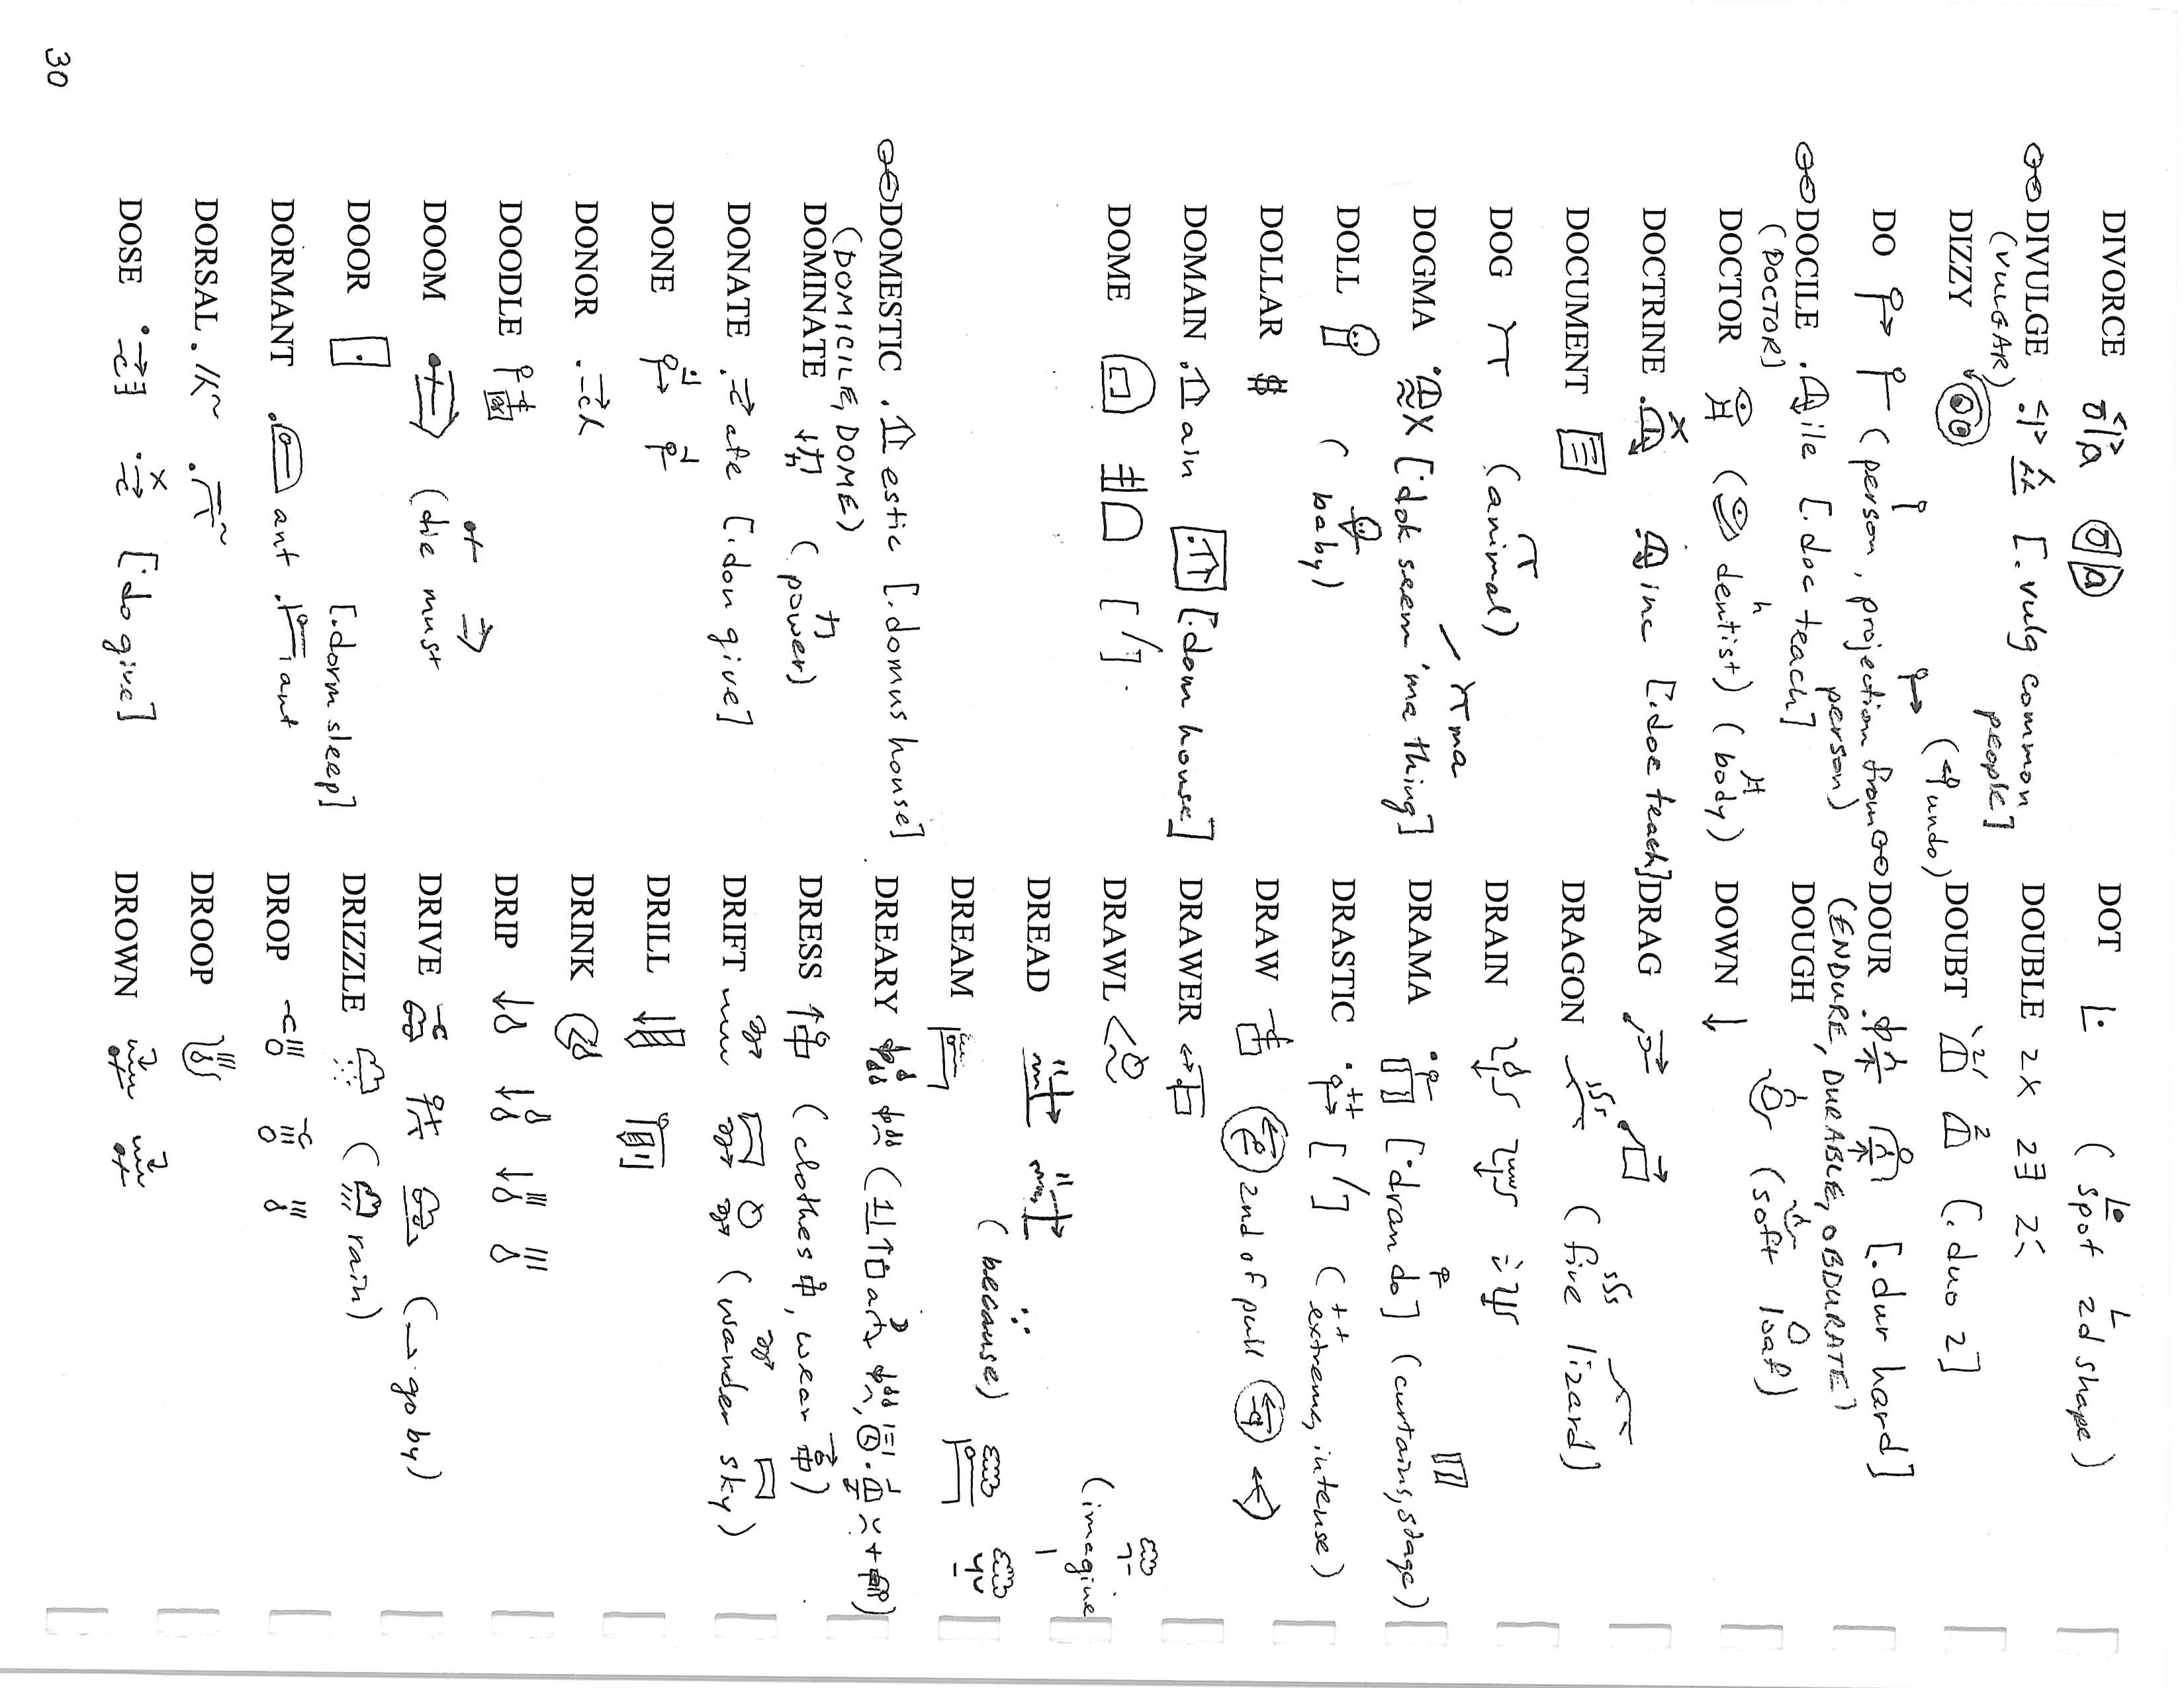 DIVORCE
DIVULGE [.vulg common people]
(VULGAR)
DIZZY
DO (person, projection from person) (undo)
DOCILE ile [.doc teach]
(DOCTOR)
DOCTOR (dentist) (body)
DOCTRINE inc [.doc teach]
DOCUMENT
DOG (animal)
DOGMA [.dok seem 'ma thing] ma
DOLL ( baby)
DOLLAR $
DOMAIN ain [.dom house]
DOME [/].
DOMESTIC estic [.domus house]
(DOMICILE, DOME)
DOMINATE (power)
DONATE ate [.don give]
DONE
DONOR
DOODLE
DOOM (die must
DOOR
DORMANT ant ant [.dorm sleep]
DORSAL
DOSE [.do give]
DOT (spot 2d shape)
DOUBLE 2x
DOUBT (.duo 2]
DOUR [.dur hard]
(ENDURE, DURABLE, OBDURATE)
DOUGH (soft loaf)
DOWN
DRAG
DRAGON (fire lizard)
DRAIN
DRAMA [.dran do] (curtains, stage)
DRASTIC [/] (extreme, intense)
DRAW 2nd of pull
DRAWER
DRAWL
DREAD (because)
DREAM (imagine
DREARY
DRESS (clothes, wear)
DRIFT (wander sky)
DRILL
DRINK
DRIP
DRIVE (go by)
DRIZZLE (rain)
DROP
DROOP
DROWN
30